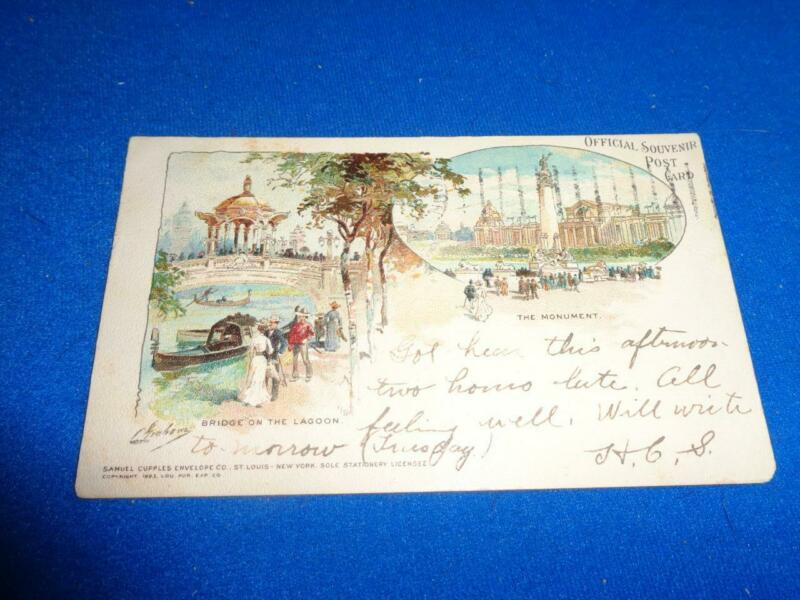 OFFICIAL SOUVENIR
POST
CARD
THE MONUMENT.
BRIDGE ON THE LAGOON.
Got hear this afternoon
two homs late. All
feeling well. Will write
to-morrow (Tuesday)
H. C. S.
SAMUEL CUPPLES ENVELOPE CO., ST. LOUIS - NEW YORK. SOLE STATIONERY LICENSEE
COPYRIGHT LOU. PUR. EXP. CO.